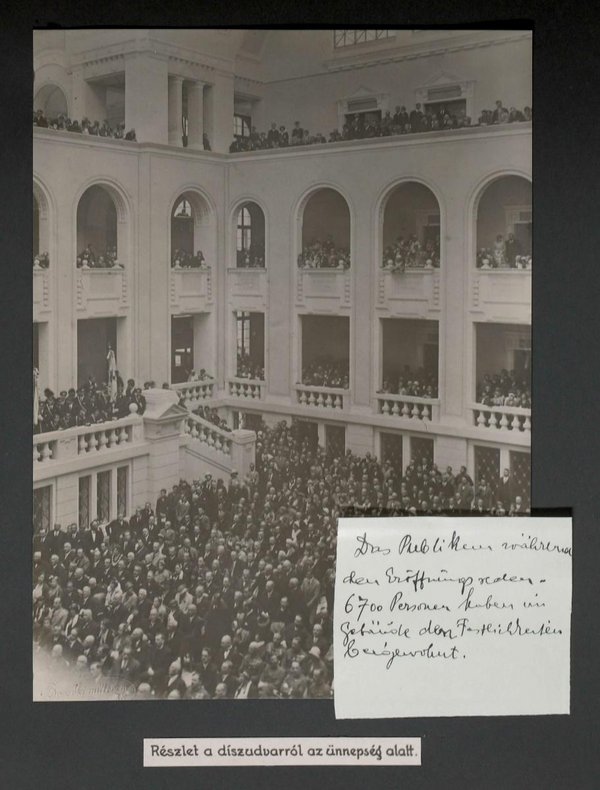 Das Publikum während
den Eröffnungsreden.
6700 Personen haben im
Gebäude den Festlichkeiten
beigewohnt.
Részlet a díszudvarról az ünnepség alatt.